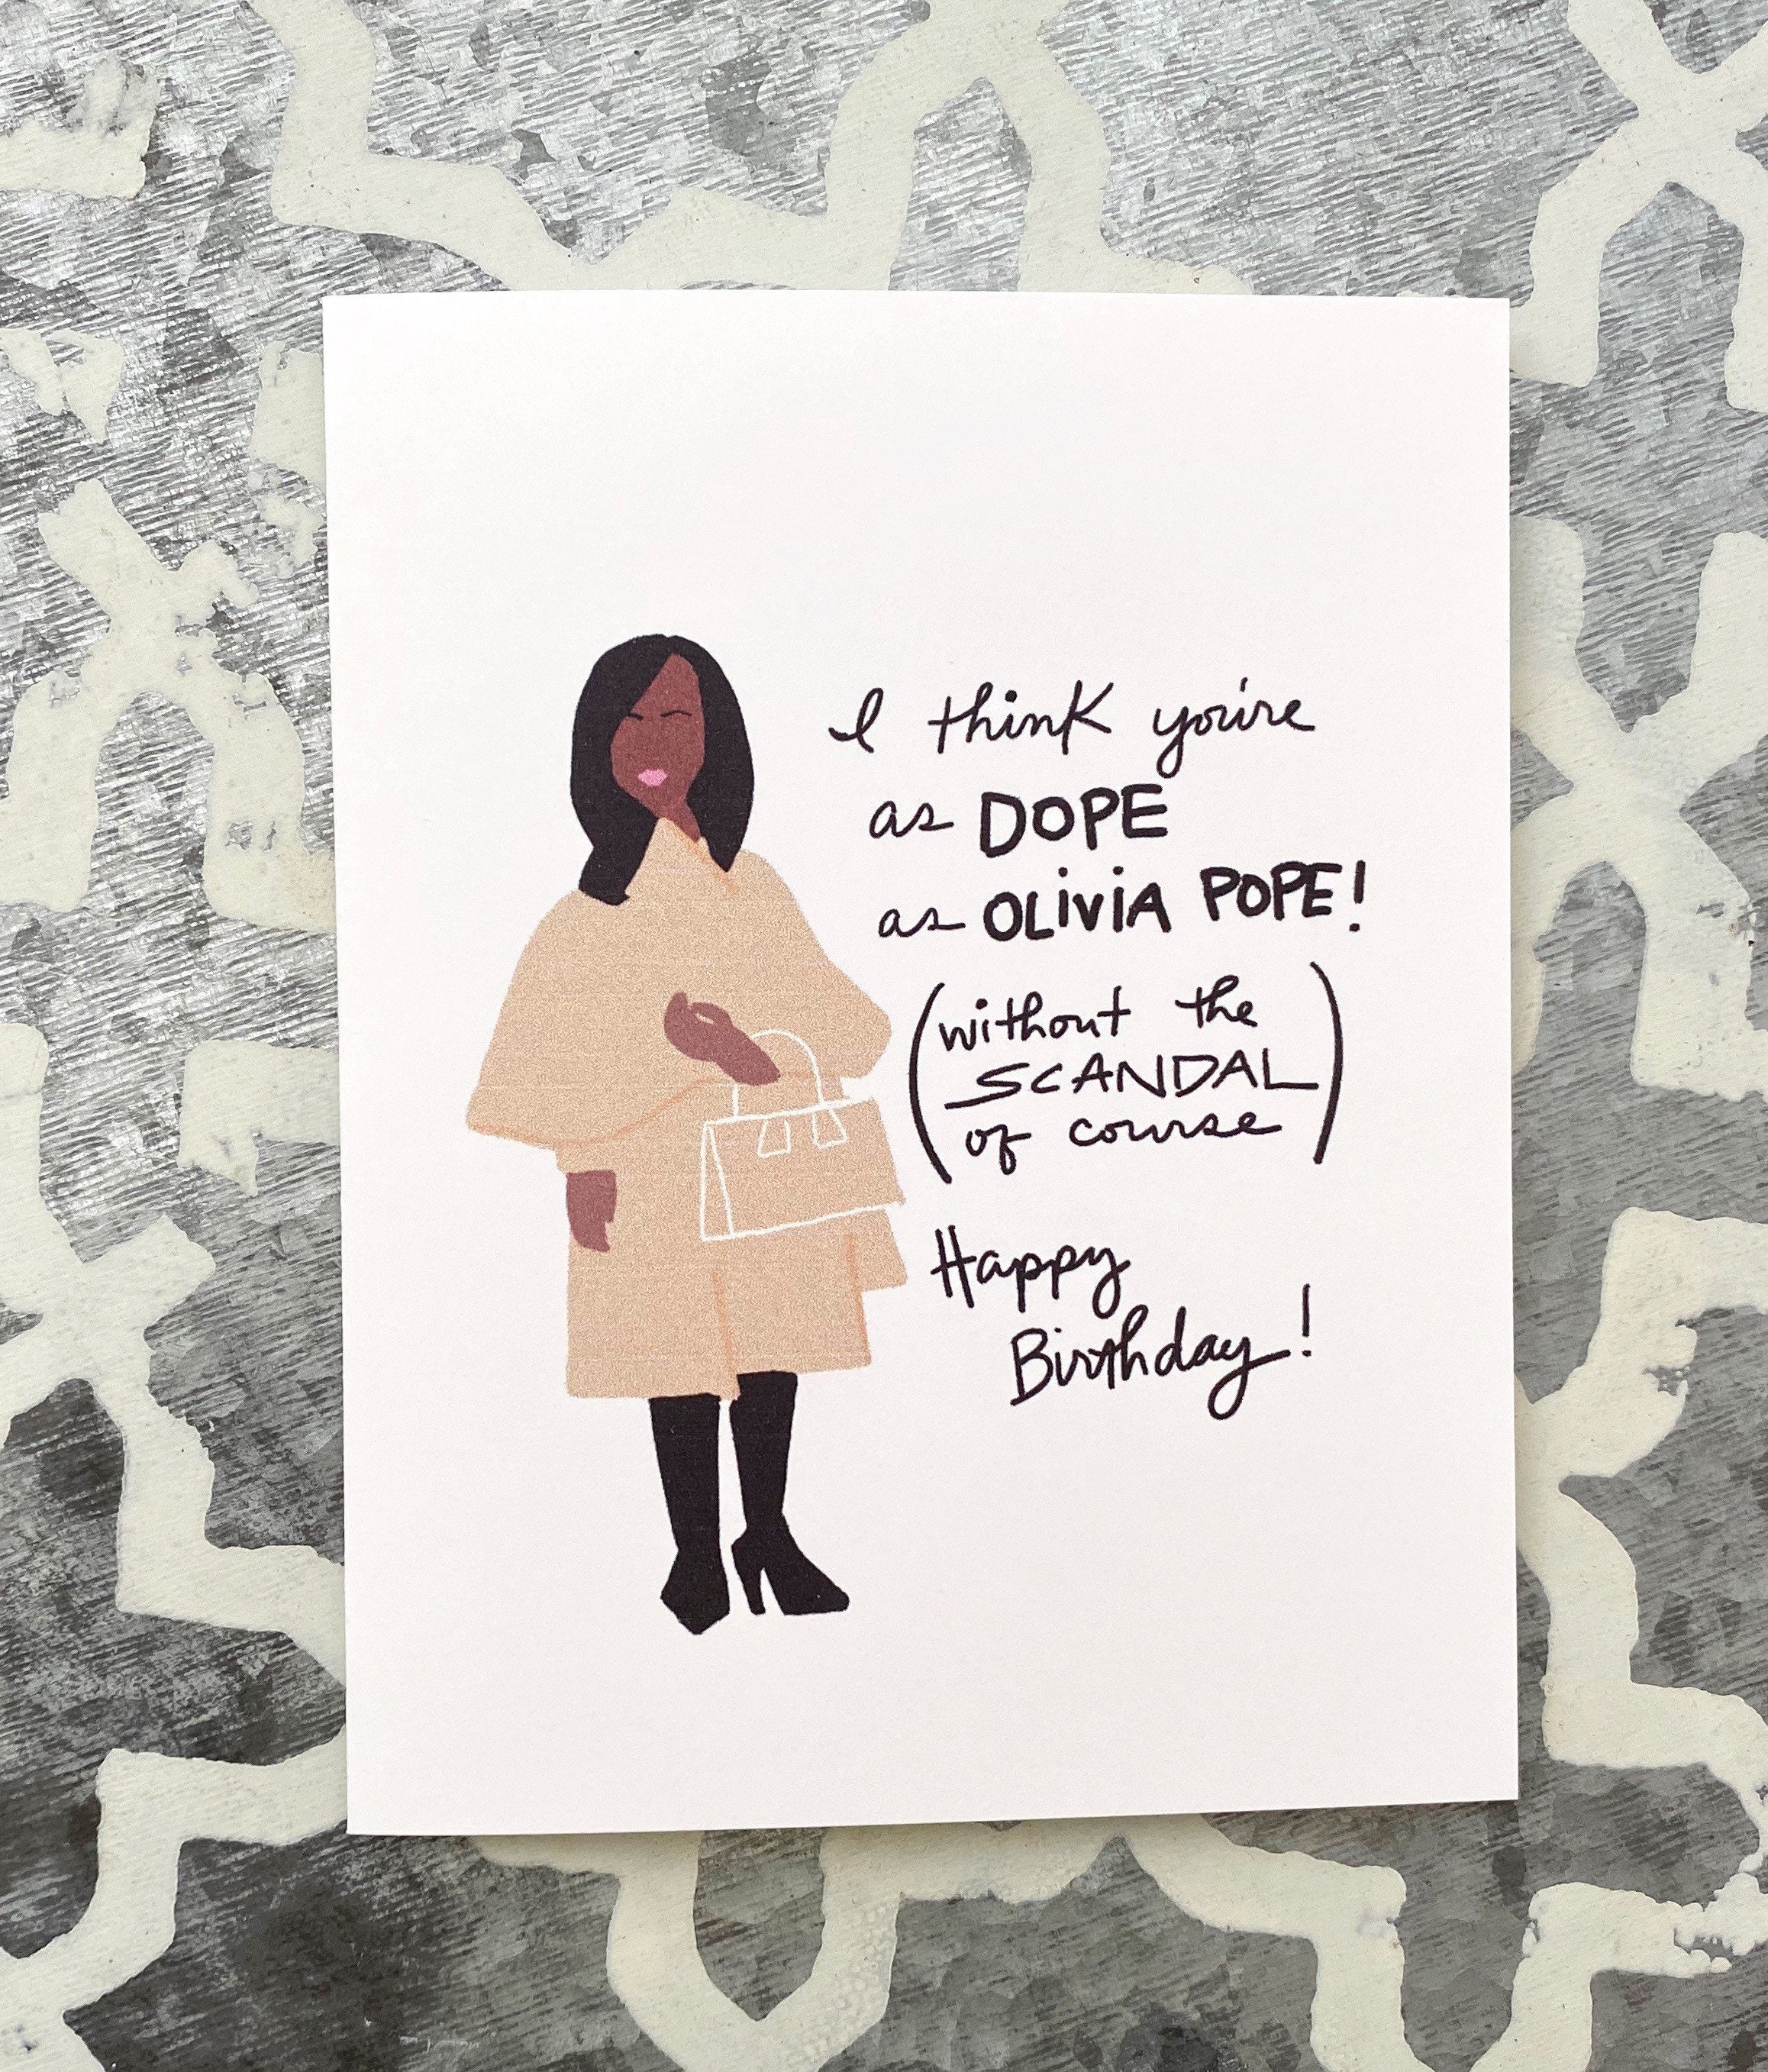 I think you're
as DOPE
as OLIVIA POPE!
(without the
SCANDAL
of course)
Happy
Birthday!